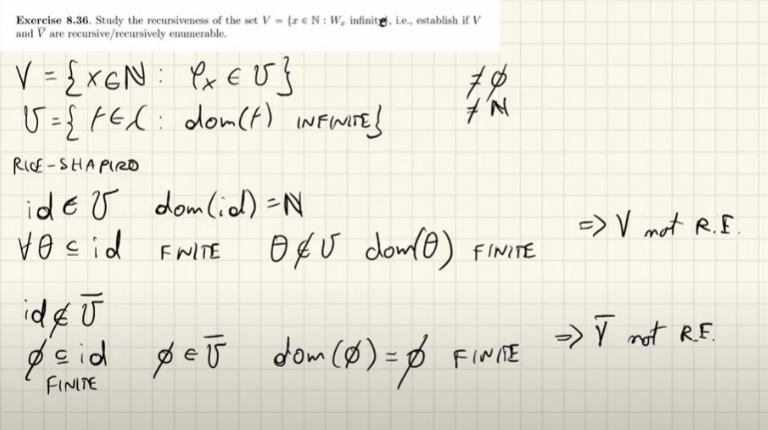 Exercise 8.36. Study the recursiveness of the set V = {x ∈ ℕ : Wₓ infinite}, i.e., establish if V
and V̅ are recursive/recursively enumerable.
V = {x∈ℕ : φₓ ∈ 𝒱} ≠ ∅
𝒱 = {f∈𝒞 : dom(f) INFINITE} ≠ ℕ
RICE-SHAPIRO
id ∈ 𝒱 dom(id) = ℕ
∀θ ⊆ id FINITE θ ∉ 𝒱 dom(θ) FINITE => V not R.E.
id ∉ 𝒱̅
∅ ⊆ id ∅ ∈ 𝒱̅ dom(∅) = ∅ FINITE => V̅ not R.E.
FINITE